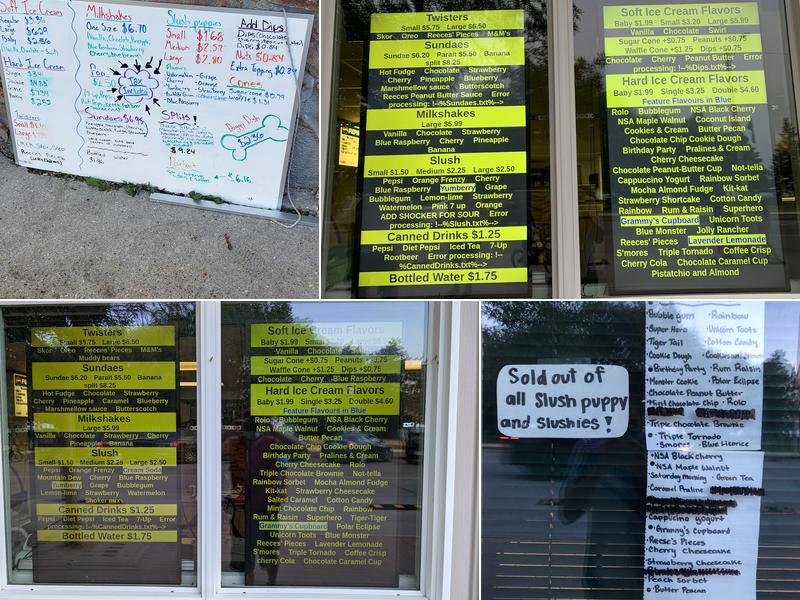 Soft Ice Cream
Hard Ice Cream
Milkshakes
One Size $6.70
Sundaes $6.95
Slush puppies
Small $1.68
Medium $2.52
Large $2.80
Splits!
$9.24
Add Dips
Nuts $0.84
Extra topping $0.84
Cones
TAX
Included
Doggy Dish
$6.16
Bottled Water
Twisters
Small $5.75 Large $6.50
Skor Oreo Reeses' Pieces M&M's
Sundaes
Sundae $6.20 Parait $5.50 Banana
split 8.25
Hot Fudge Chocolate Strawberry
Cherry Pineapple Blueberry
Marshmellow sauce Butterscotch
Reeses Peanut Butter Sauce Error
processing: !--%Sundaes.txt%-->
Milkshakes
Large $5.99
Vanilla Chocolate Strawberry
Blue Raspberry Cherry Pineapple
Banana
Slush
Small $1.50 Medium $2.25 Large $2.50
Pepsi Orange Frenzy Cherry
Blue Raspberry Yumberry Grape
Bubblegum Lemon-lime Strawberry
Watermelon Pink 7 up Orange
ADD SHOCKER FOR SOUR Error
processing: !--%Slush.txt%-->
Canned Drinks $1.25
Pepsi Diet Pepsi Iced Tea 7-Up
Rootbeer Error processing: !--
%CannedDrinks.txt%-->
Bottled Water $1.75
Soft Ice Cream Flavors
Baby $1.99 Small $3.20 Large $5.99
Vanilla Chocolate Swirl
Sugar Cone +$0.75 Peanuts +$0.75
Waffle Cone +$1.25 Dips +$0.75
Chocolate Cherry Peanut Butter Error
processing: !--%Dips.txt%-->
Hard Ice Cream Flavors
Baby $1.99 Single $3.25 Double $4.60
Feature Flavours in Blue
Rolo Bubblegum NSA Black Cherry
NSA Maple Walnut Coconut Island
Cookies & Cream Butter Pecan
Chocolate Chip Cookie Dough
Birthday Party Pralines & Cream
Cherry Cheesecake
Chocolate Peanut-Butter Cup Not-tella
Cappucino Yogurt Rainbow Sorbet
Mocha Almond Fudge Kit-kat
Strawberry Shortcake Cotton Candy
Rainbow Rum & Raisin Superhero
Grammy's Cupboard Unicorn Toots
Blue Monster Jolly Rancher
Reese's Pieces Lavender Lemonade
S'mores Triple Tornado Coffee Crisp
Cherry Cola Chocolate Caramel Cup
Pistatchio and Almond
Twisters
Small $5.75 Large $6.50
Skor Oreo Reeses' Pieces M&M's
Muddy bears
Sundaes
Sundae $6.20 Parait $5.50 Banana
split $8.25
Hot Fudge Chocolate Strawberry
Cherry Pineapple Caramel Blueberry
Marshmellow sauce Butterscotch
Milkshakes
Large $5.99
Vanilla Chocolate Strawberry Cherry
Pineapple Banana
Slush
Small $1.50 Medium $2.25 Large $2.50
Pepsi Orange Frenzy Cream Soda
Mountain Dew Cherry Blue Raspberry
Yumberry Grape Bubblegum
Lemon-lime Strawberry Watermelon
Canned Drinks $1.25
Pepsi Diet Pepsi Iced Tea 7-Up Error
processing: !--%CannedDrinks.txt%-->
Bottled Water $1.75
Soft Ice Cream Flavors
Baby $1.99 Small $3.20 Large $5.99
Vanilla Chocolate Swirl
Sugar Cone +$0.75 Peanuts +$0.75
Waffle Cone +$1.25 Dips +$0.75
Chocolate Cherry Blue Raspberry
Hard Ice Cream Flavors
Baby $1.99 Single $3.25 Double $4.60
Feature Flavours in Blue
Rolo Bubblegum NSA Black Cherry
NSA Maple Walnut Cookies & Cream
Butter Pecan
Chocolate Chip Cookie Dough
Birthday Party Pralines & Cream
Cherry Cheesecake Rolo
Triple Chocolate Brownie Not-tella
Rainbow Sorbet Mocha Almond Fudge
Kit-kat Strawberry Cheesecake
Salted Caramel Cotton Candy
Mint Chocolate Chip Rainbow
Rum & Raisin Superhero Tiger-Tiger
Grammy's Cupboard Polar Eclipse
Unicorn Toots Blue Monster
Reese's Pieces Lavender Lemonade
S'mores Triple Tornado Coffee Crisp
cherry Cola Chocolate Caramel Cup
Sold out of
all Slush puppy
and slushies!
Bubble gum Rainbow
Super Hero Unicorn Toots
Tiger Tail Cotton Candy
Cookie Dough
Birthday Party Rum Raisin
Monster Cookie Polar Eclipse
Chocolate Peanut Butter
Mint Chocolate Chip Rolo
Triple Chocolate Brownie
Triple Tornado
Smores Blue Licorice
NSA Black cherry
NSA Maple Walnut
Saturday morning Green Tea
Caramel Praline
Cappuccino yogurt
Grammy's Cupboard
Reese's Pieces
Cherry Cheesecake
Strawberry Cheesecake
Peach Sorbet
Butter Pecan